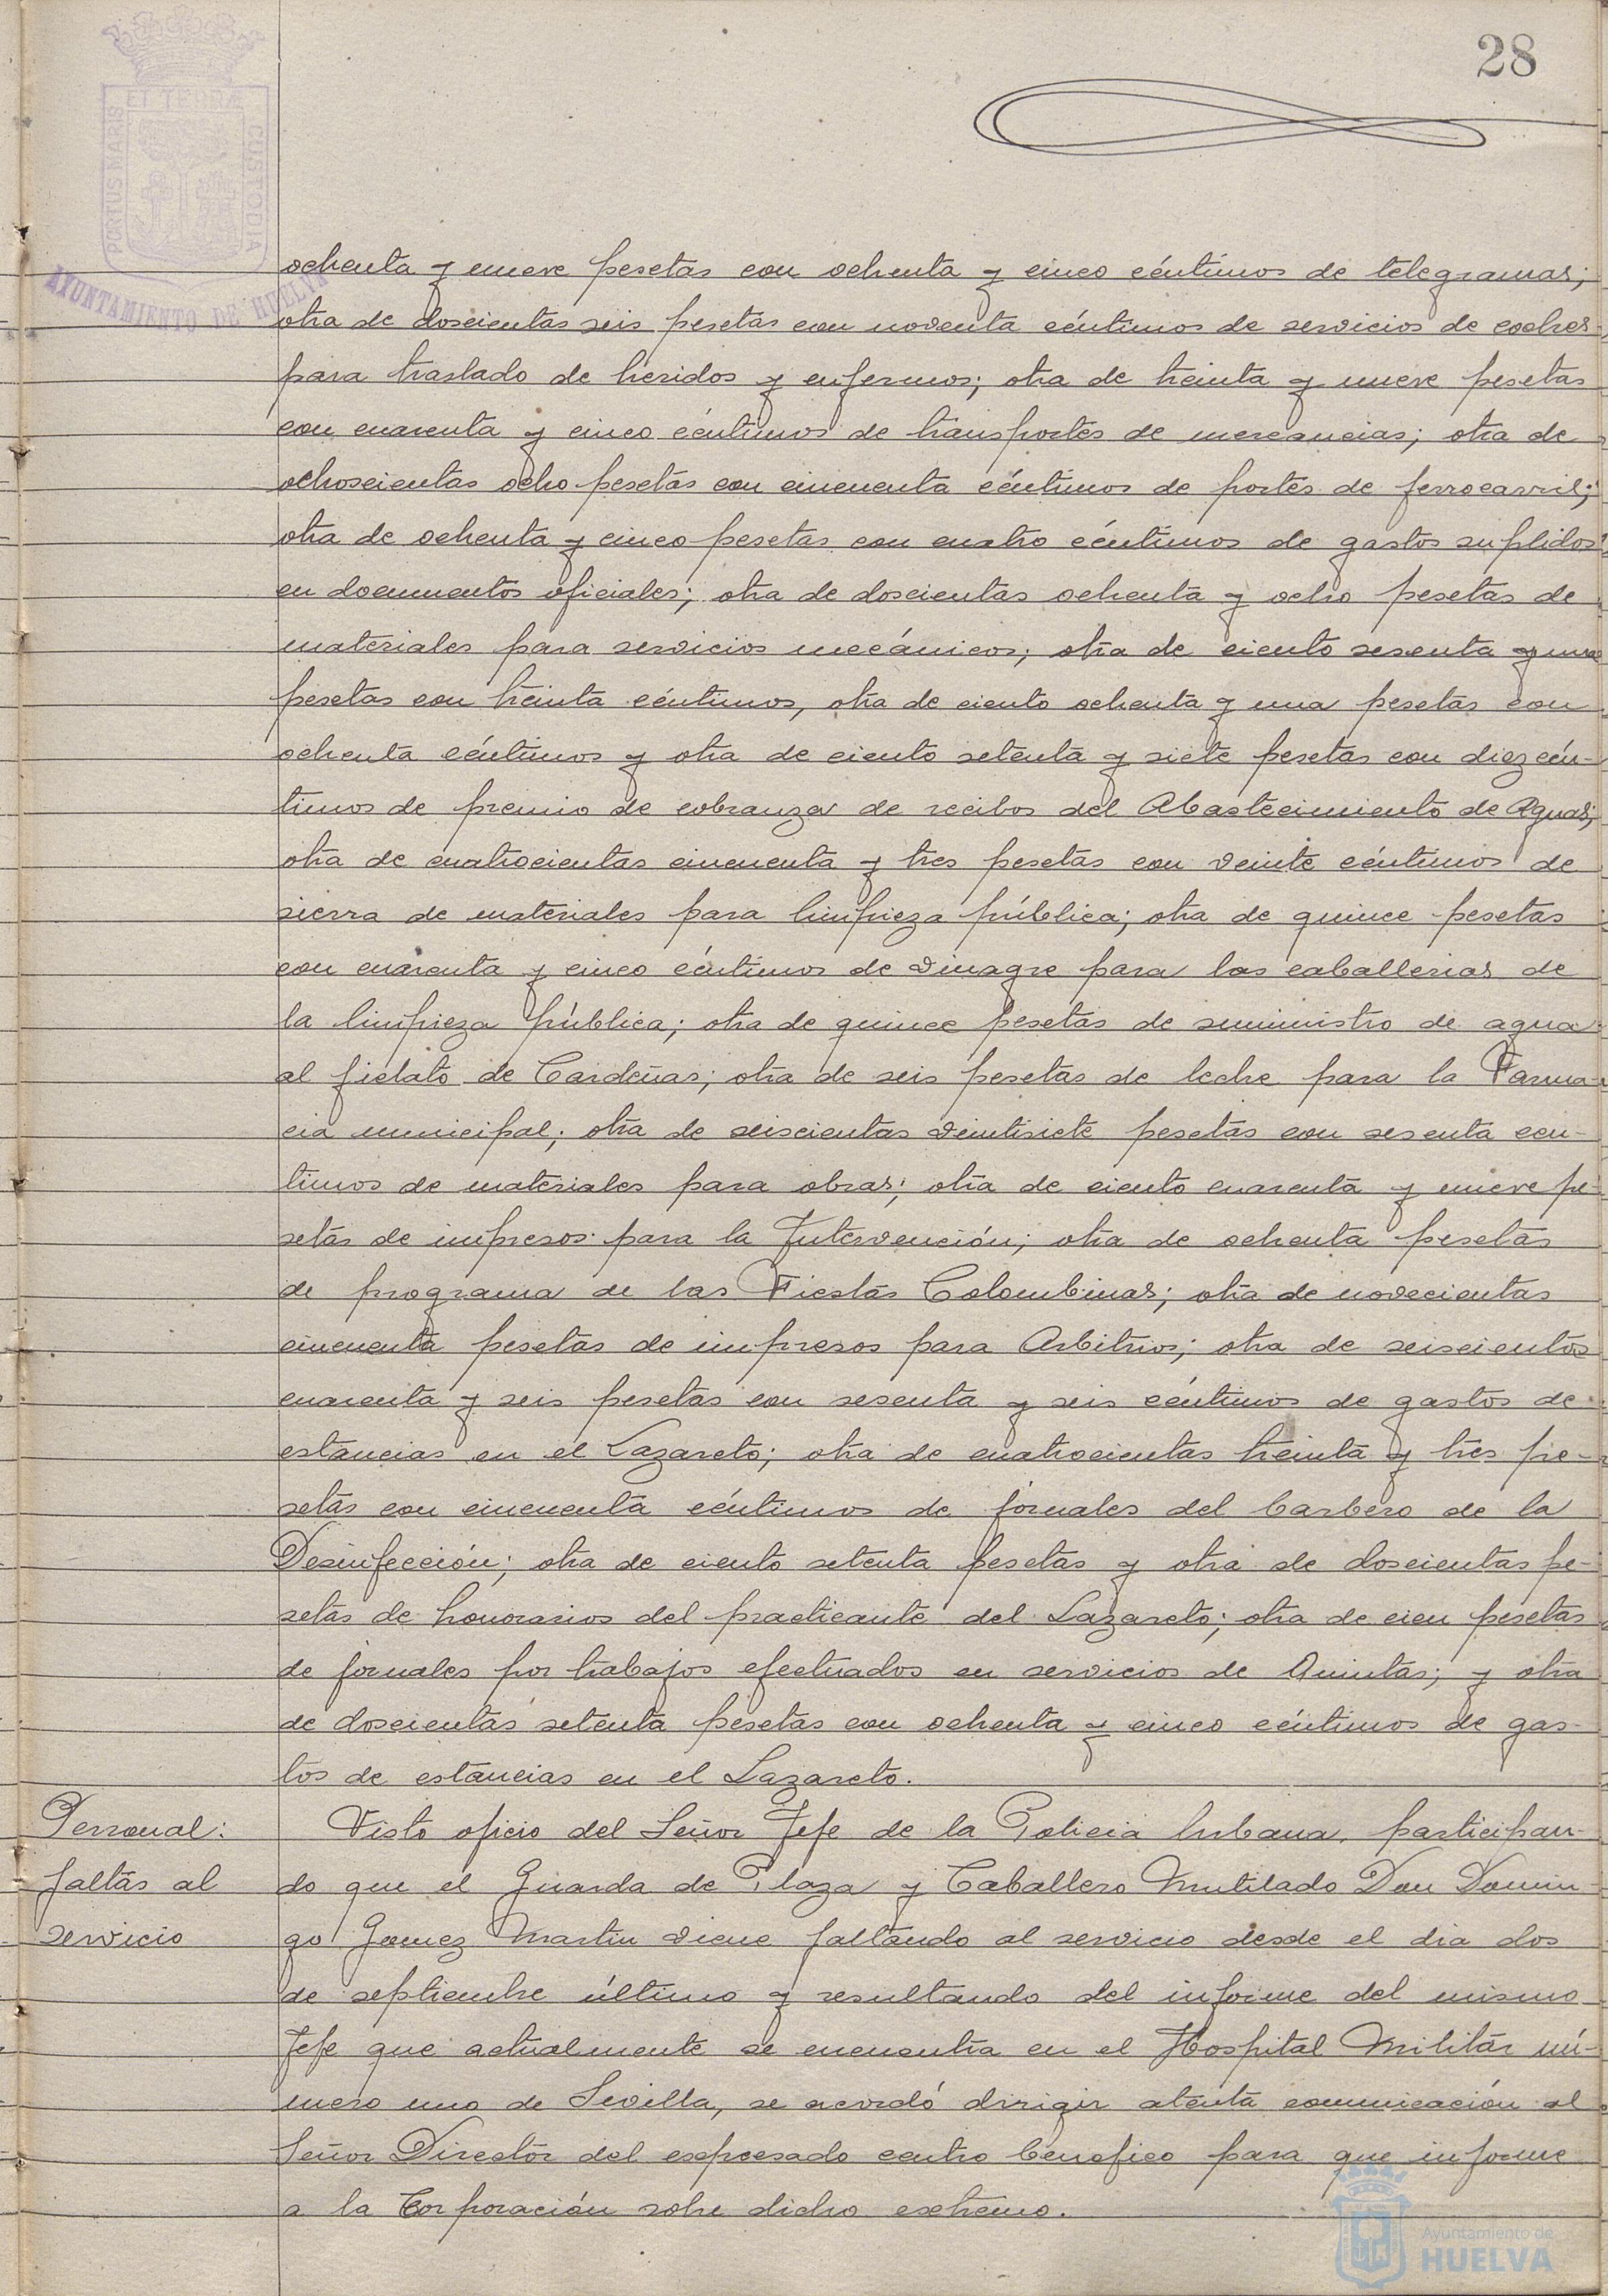 28
PORTUS MARIS
ET TERRÆ
CUSTODIA
AYUNTAMIENTO DE HUELVA
ochenta y nueve pesetas con ochenta y cinco céntimos de telegramas;
otra de doscientas seis pesetas con noventa céntimos de servicios de coches
para traslado de heridos y enfermos; otra de treinta y nueve pesetas
con cuarenta y cinco céntimos de transportes de mercancias; otra de
ochoscientas ocho pesetas con cincuenta céntimos de portes de ferrocarril;
otra de ochenta y cinco pesetas con cuatro céntimos de gastos suplidos
en documentos oficiales; otra de doscientas ochenta y ocho pesetas de
materiales para servicios mecánicos; otra de ciento sesenta y una
pesetas con treinta céntimos, otra de ciento ochenta y una pesetas con
ochenta céntimos y otra de ciento setenta y siete pesetas con diez cén-
timos de premio de cobranza de recibos del Abastecimiento de Aguas;
otra de cuatrocientas cincuenta y tres pesetas con veinte céntimos de
sierra de materiales para limpieza pública; otra de quince pesetas
con cuarenta y cinco céntimos de vinagre para las caballerias de
la limpieza pública; otra de quince pesetas de suministro de agua
al fielato de Cardeñas; otra de seis pesetas de leche para la Farma-
cia municipal; otra de seiscientas veintisiete pesetas con sesenta cen-
timos de materiales para obras; otra de ciento cuarenta y nueve pe-
setas de impresos para la Intervención; otra de ochenta pesetas
de programa de las Fiestas Colombinas; otra de novecientas
cincuenta pesetas de impresos para Arbitrios; otra de seiscientos
cuarenta y seis pesetas con sesenta y seis céntimos de gastos de
estancias en el Lazareto; otra de cuatrocientas treinta y tres pe-
setas con cincuenta céntimos de jornales del barbero de la
Desinfección; otra de ciento setenta pesetas y otra de doscientas pe-
setas de honorarios del practicante del Lazareto; otra de cien pesetas
de jornales por trabajos efectuados en servicios de Quintas; y otra
de doscientas setenta pesetas con ochenta y cinco céntimos de gas-
tos de estancias en el Lazareto.
Personal:
faltas al
servicio
Visto oficio del Señor Jefe de la Policia Urbana, participan-
do que el Guarda de Plaza y Caballero Mutilado Don Domin-
go Gomez Martin viene faltando al servicio desde el dia dos
de septiembre último y resultando del informe del mismo
Jefe que actualmente se encuentra en el Hospital Militar nú-
mero uno de Sevilla, se acordó dirigir atenta comunicación al
Señor Director del expresado centro benefico para que informe
a la Corporación sobre dicho extremo.
Ayuntamiento de
HUELVA